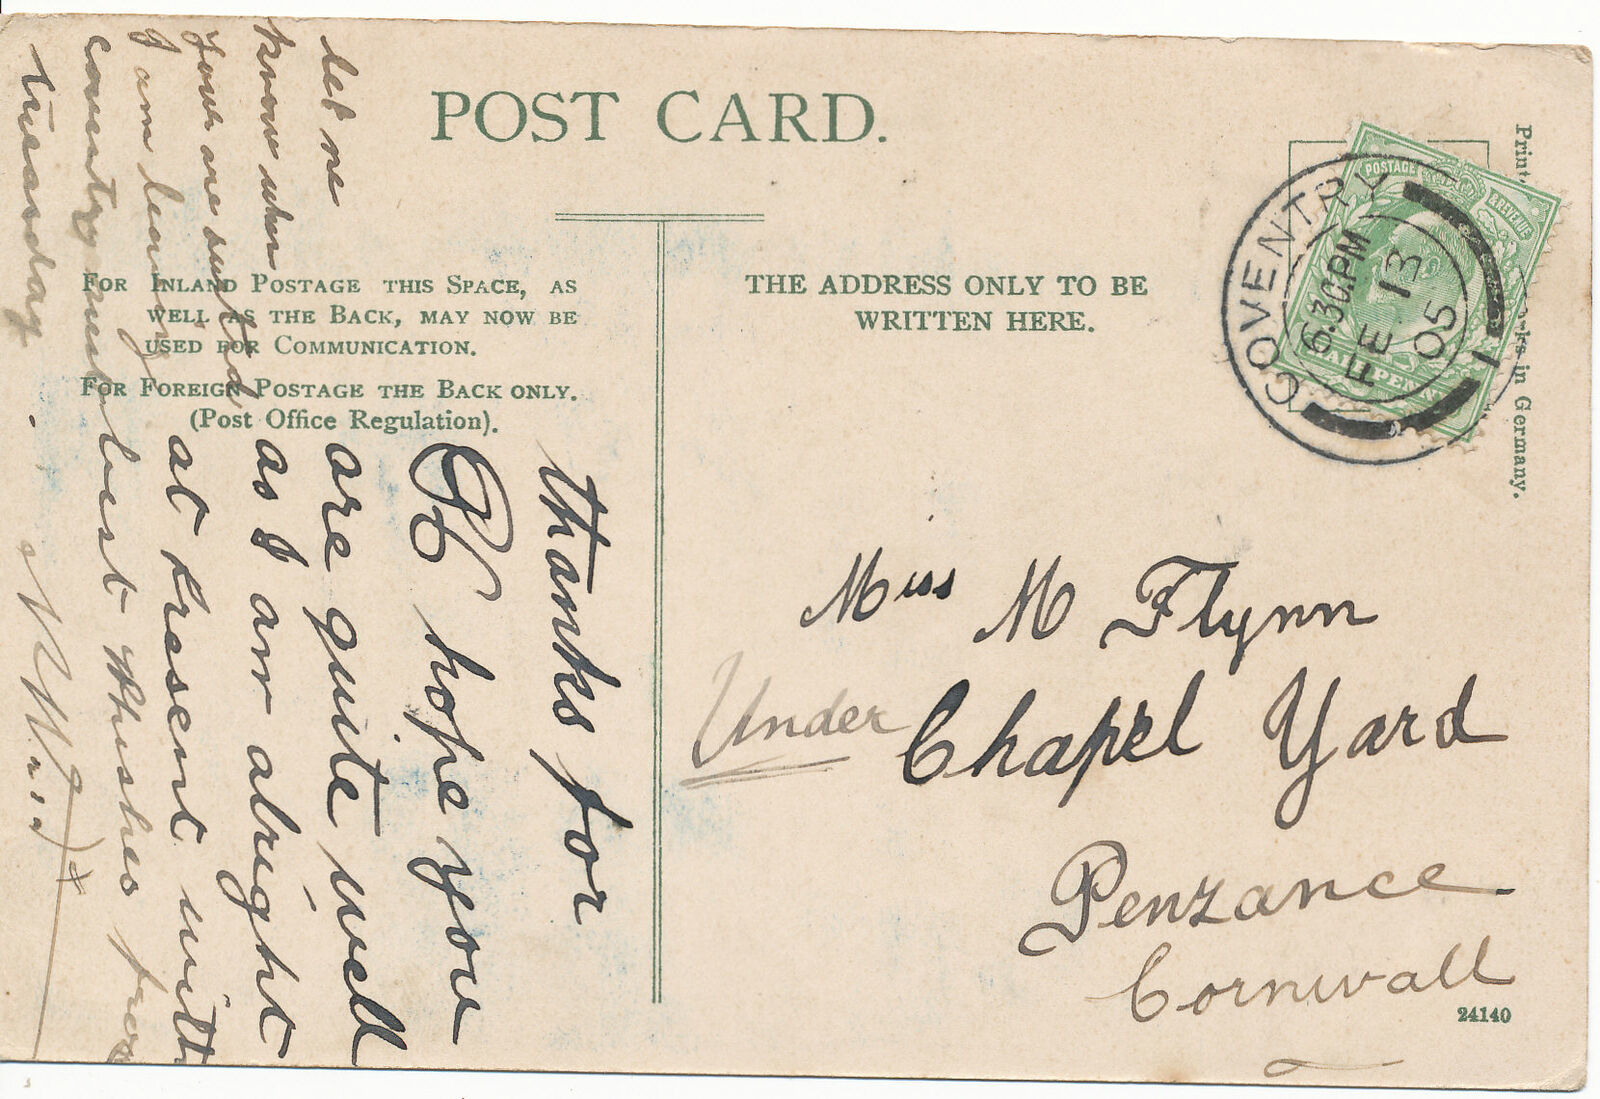 POST CARD.
FOR INLAND POSTAGE THIS SPACE, AS
WELL AS THE BACK, MAY NOW BE
USED FOR COMMUNICATION.
FOR FOREIGN POSTAGE THE BACK ONLY.
(Post Office Regulation).
THE ADDRESS ONLY TO BE
WRITTEN HERE.
COVENTRY
6.30.PM
FE 13
05
1
POSTAGE
& REVENUE
in Germany.
Miss M Flynn
Under Chapel Yard
Penzance
Cornwall
24140
thanks for
hope you
are quite well
as I am alright
at present with
best Whishes from
let me
know when
your are suited
I am leaving
country
tueasday